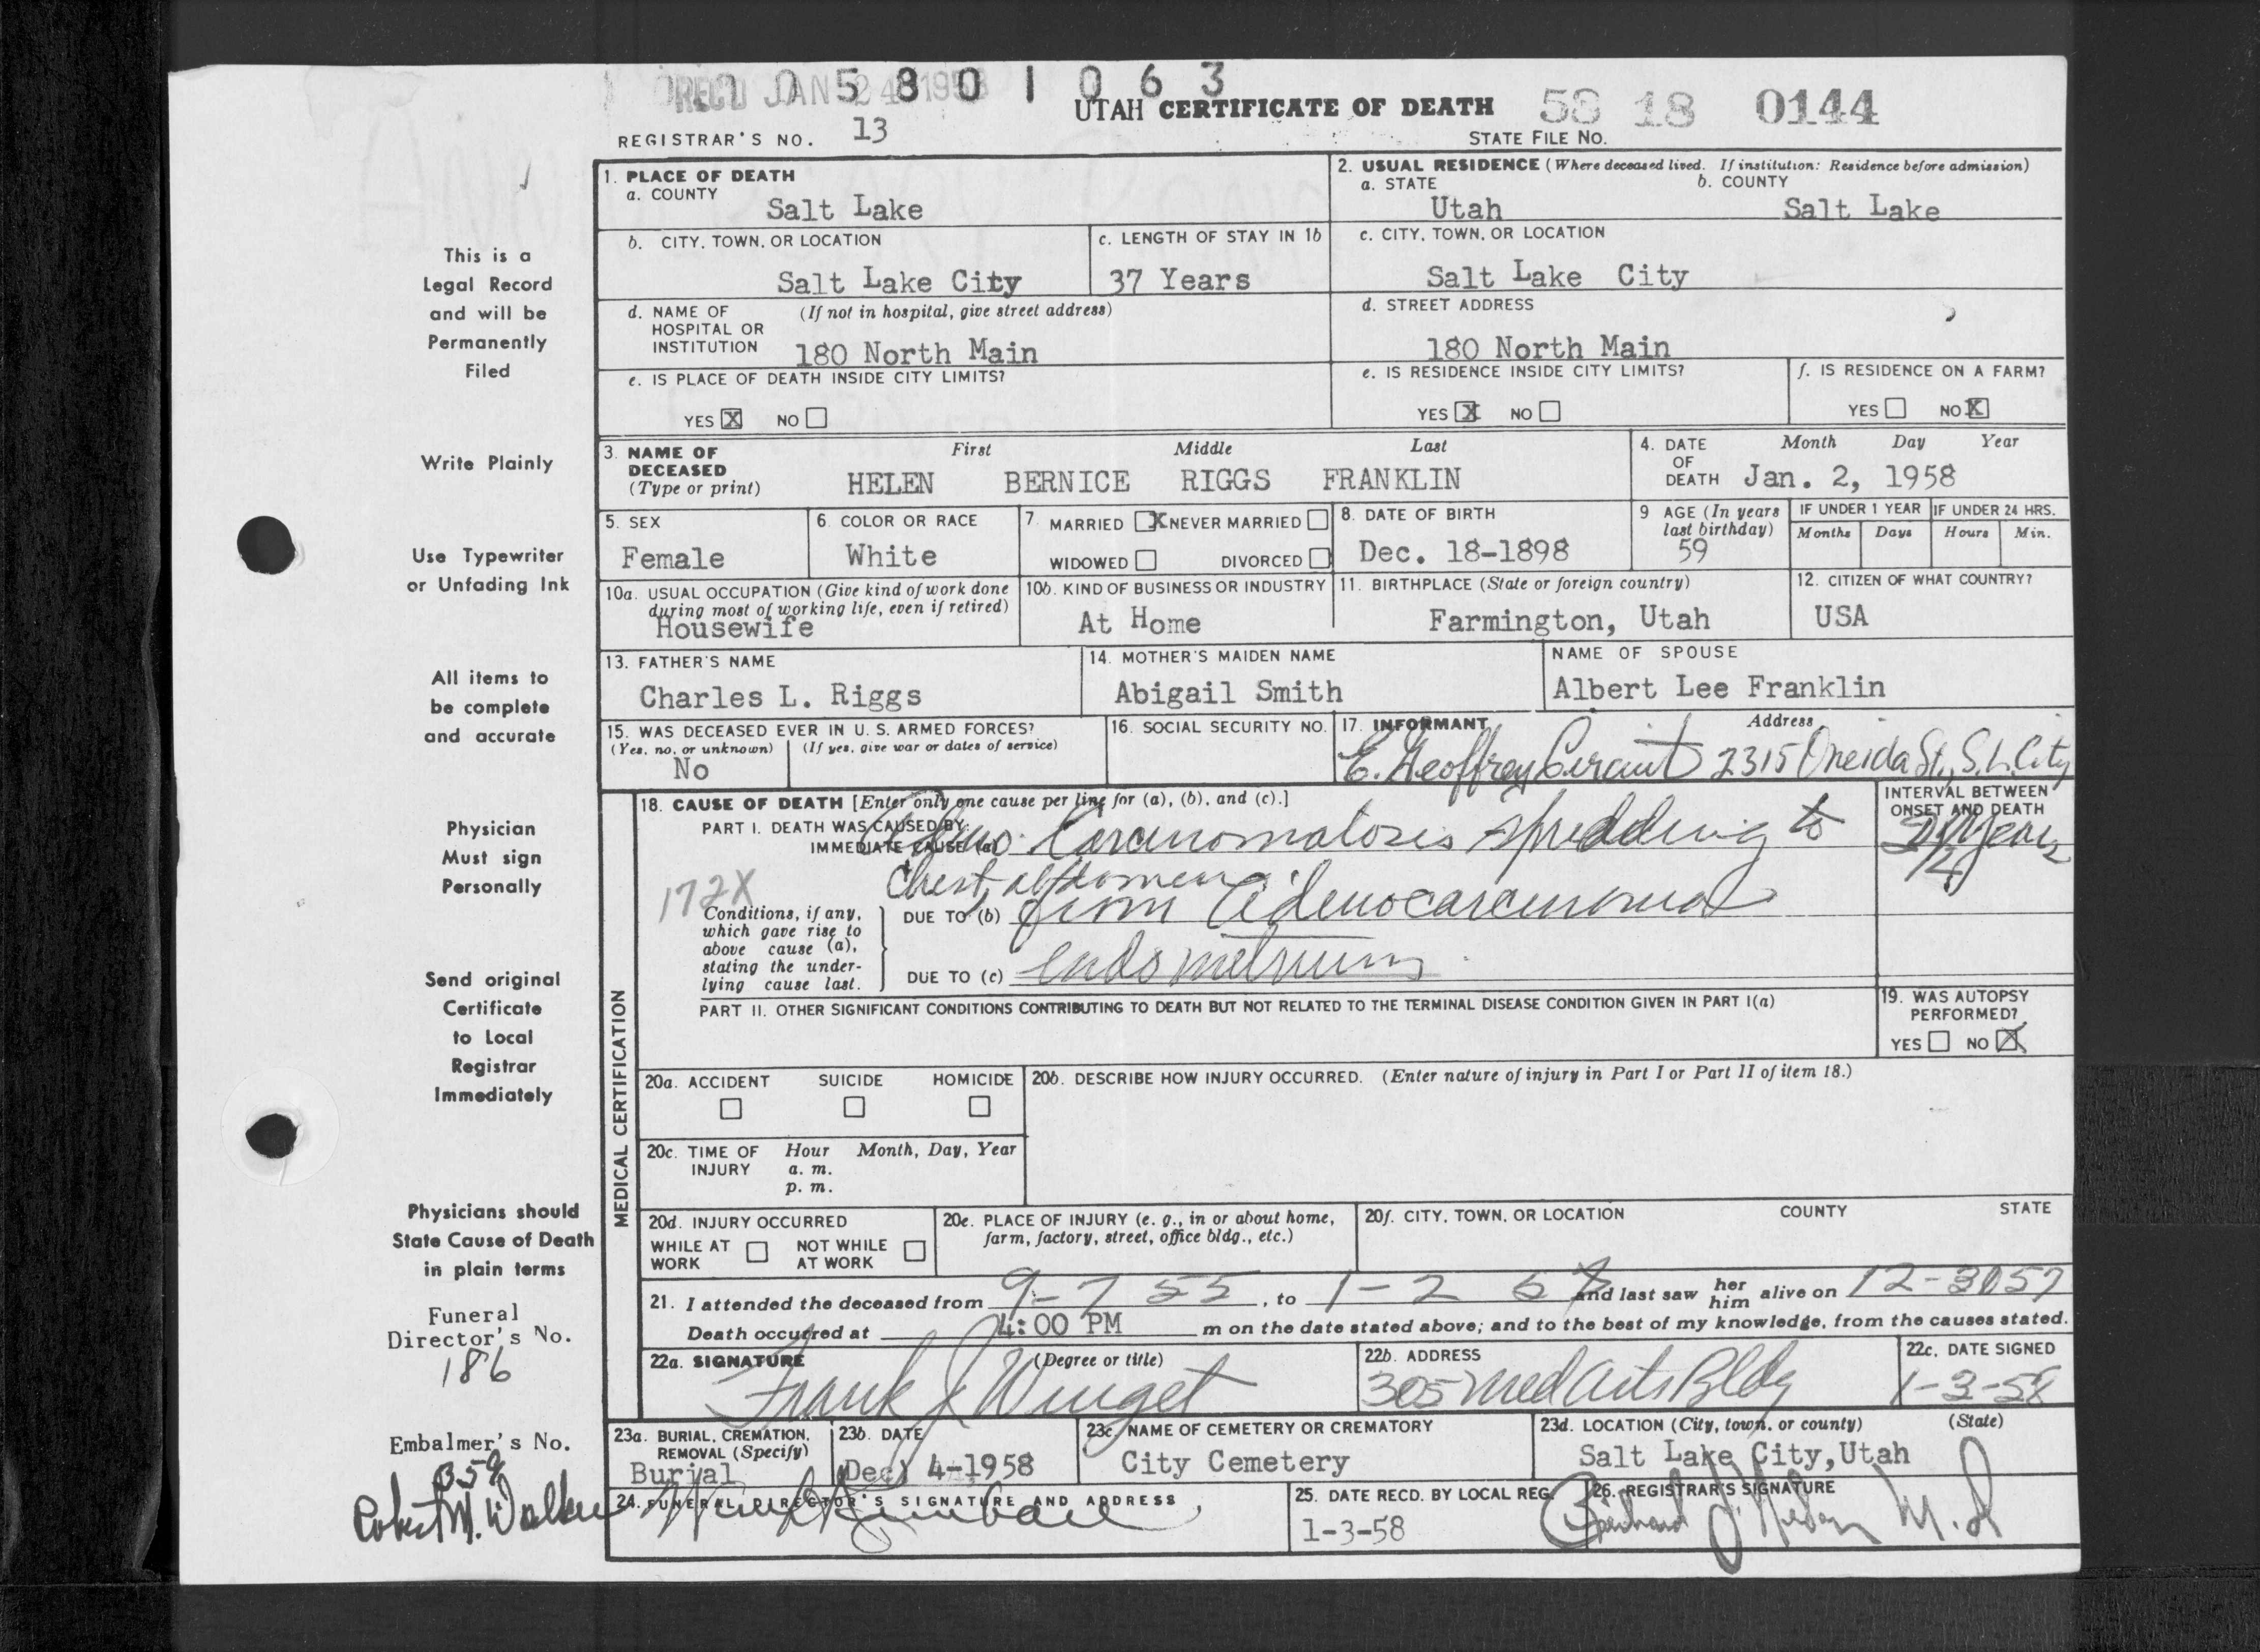 REC'D JAN 24 1958
0 5 8 0 1 0 6 3
UTAH CERTIFICATE OF DEATH 58 18 0144
REGISTRAR'S NO. 13
STATE FILE NO.
This is a
Legal Record
and will be
Permanently
Filed
Write Plainly
Use Typewriter
or Unfading Ink
All items to
be complete
and accurate
Physician
Must sign
Personally
Send original
Certificate
to Local
Registrar
Immediately
Physicians should
State Cause of Death
in plain terms
Funeral
Director's No.
186
Embalmer's No.
359
Robert M. Walker
1. PLACE OF DEATH
a. COUNTY
Salt Lake
b. CITY, TOWN, OR LOCATION
Salt Lake City
c. LENGTH OF STAY IN 1b
37 Years
d. NAME OF (If not in hospital, give street address)
HOSPITAL OR
INSTITUTION 180 North Main
e. IS PLACE OF DEATH INSIDE CITY LIMITS?
YES X NO
2. USUAL RESIDENCE (Where deceased lived. If institution: Residence before admission)
a. STATE b. COUNTY
Utah Salt Lake
c. CITY, TOWN, OR LOCATION
Salt Lake City
d. STREET ADDRESS
180 North Main
e. IS RESIDENCE INSIDE CITY LIMITS?
YES X NO
f. IS RESIDENCE ON A FARM?
YES NO X
3. NAME OF First Middle Last
DECEASED
(Type or print) HELEN BERNICE RIGGS FRANKLIN
4. DATE Month Day Year
OF
DEATH Jan. 2, 1958
5. SEX
Female
6. COLOR OR RACE
White
7. MARRIED X NEVER MARRIED
WIDOWED DIVORCED
8. DATE OF BIRTH
Dec. 18-1898
9 AGE (In years
last birthday)
59
IF UNDER 1 YEAR IF UNDER 24 HRS.
Months Days Hours Min.
10a. USUAL OCCUPATION (Give kind of work done
during most of working life, even if retired)
Housewife
10b. KIND OF BUSINESS OR INDUSTRY
At Home
11. BIRTHPLACE (State or foreign country)
Farmington, Utah
12. CITIZEN OF WHAT COUNTRY?
USA
13. FATHER'S NAME
Charles L. Riggs
14. MOTHER'S MAIDEN NAME
Abigail Smith
NAME OF SPOUSE
Albert Lee Franklin
15. WAS DECEASED EVER IN U. S. ARMED FORCES?
(Yes, no, or unknown) (If yes, give war or dates of service)
No
16. SOCIAL SECURITY NO.
17. INFORMANT Address
E. Geoffrey 2315 Oneida St., S.L. City
MEDICAL CERTIFICATION
18. CAUSE OF DEATH [Enter only one cause per line for (a), (b), and (c).]
PART I. DEATH WAS CAUSED BY:
IMMEDIATE CAUSE (a) Carcinomatosis spredding to
chest, abdomen
172X
Conditions, if any,
which gave rise to
above cause (a),
stating the under-
lying cause last.
DUE TO (b) from Adenocarcinoma
DUE TO (c) endometrium
INTERVAL BETWEEN
ONSET AND DEATH
years
PART II. OTHER SIGNIFICANT CONDITIONS CONTRIBUTING TO DEATH BUT NOT RELATED TO THE TERMINAL DISEASE CONDITION GIVEN IN PART I(a)
19. WAS AUTOPSY
PERFORMED?
YES NO X
20a. ACCIDENT SUICIDE HOMICIDE
20b. DESCRIBE HOW INJURY OCCURRED. (Enter nature of injury in Part I or Part II of item 18.)
20c. TIME OF Hour Month, Day, Year
INJURY a. m.
p. m.
20d. INJURY OCCURRED
WHILE AT NOT WHILE
WORK AT WORK
20e. PLACE OF INJURY (e. g., in or about home,
farm, factory, street, office bldg., etc.)
20f. CITY, TOWN, OR LOCATION COUNTY STATE
21. I attended the deceased from 9-7 55, to 1-2 58 and last saw her him alive on 12-30 57
Death occurred at 4:00 PM m on the date stated above; and to the best of my knowledge, from the causes stated.
22a. SIGNATURE (Degree or title)
Frank J Winget
22b. ADDRESS
305 Med Arts Bldg
22c. DATE SIGNED
1-3-58
23a. BURIAL, CREMATION,
REMOVAL (Specify)
Burial
23b. DATE
Dec) 4-1958
23c. NAME OF CEMETERY OR CREMATORY
City Cemetery
23d. LOCATION (City, town, or county) (State)
Salt Lake City, Utah
24. FUNERAL DIRECTOR'S SIGNATURE AND ADDRESS
Kimball
25. DATE RECD. BY LOCAL REG.
1-3-58
26. REGISTRAR'S SIGNATURE
M.D